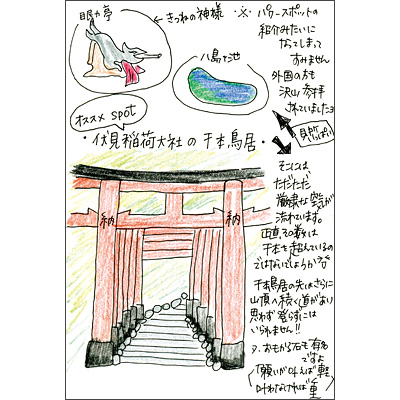 眼力亭
←きつねの神様
八島ヶ池
※ パワースポットの
紹介みたいに
なってしまって
すみません
外国の方も
沢山参拝
されていましたヨ
見所いっぱい
オススメ spot
・伏見稲荷大社の千本鳥居・
納
納
そこには
ただただ
厳粛な空気が
流れています。
正直、その数は
千本を超えているの
ではないでしょうか??
千本鳥居の先はさらに
山頂へ続く道があり
思わず登らずには
いられません!!
おもかる石も有名
ですよ
願いが叶えば軽
叶わなければ重